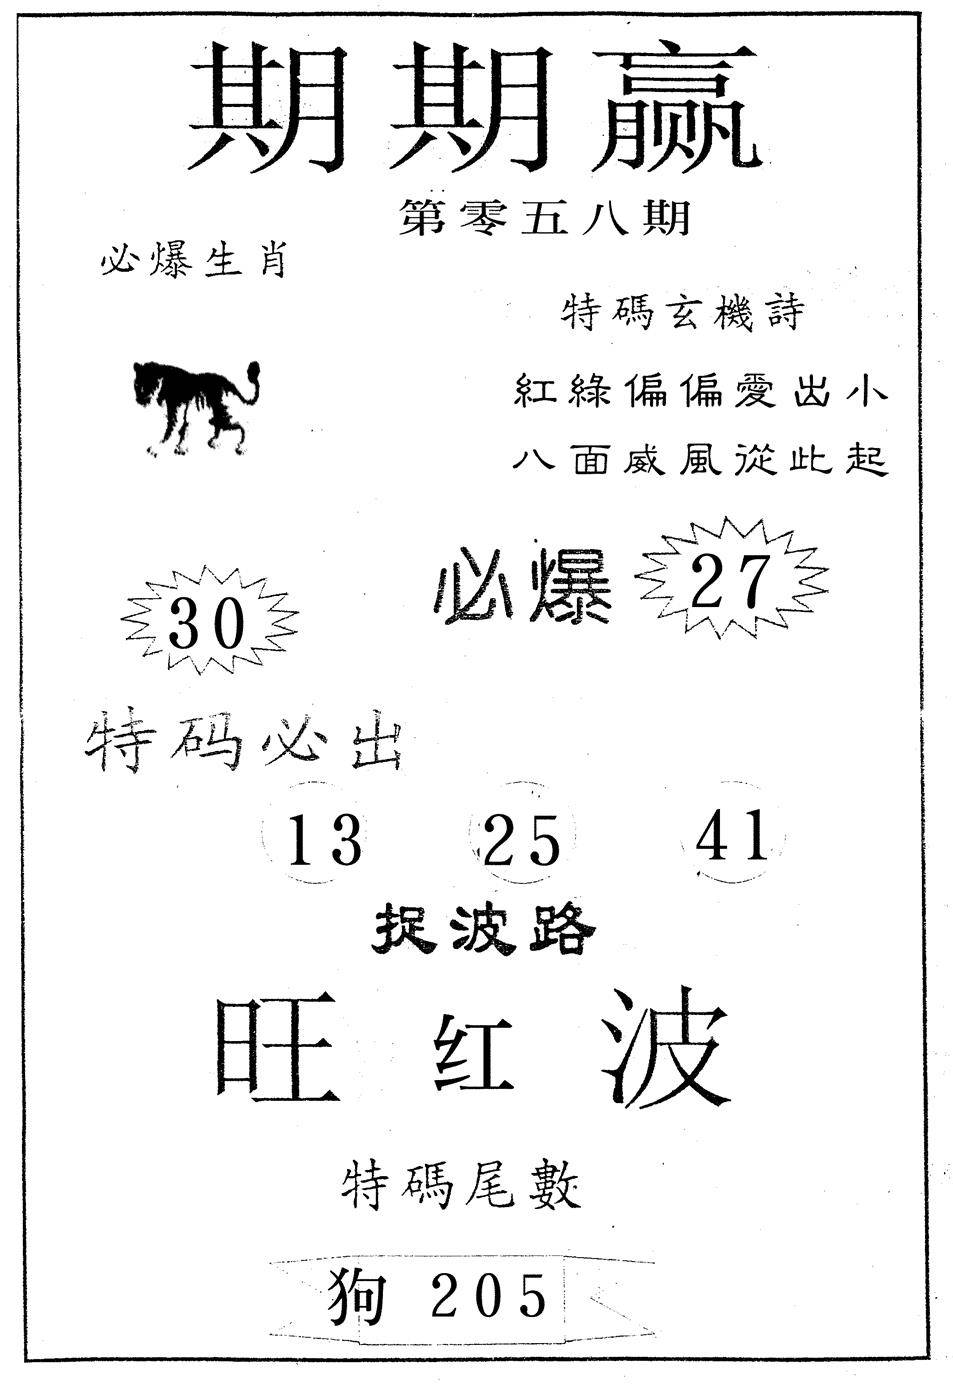 期期赢
第零五八期
必爆生肖
特碼玄機詩
紅綠偏偏愛出小
八面威風從此起
必爆 27
30
特码必出
13 25 41
捉波路
旺红波
特碼尾數
狗 205